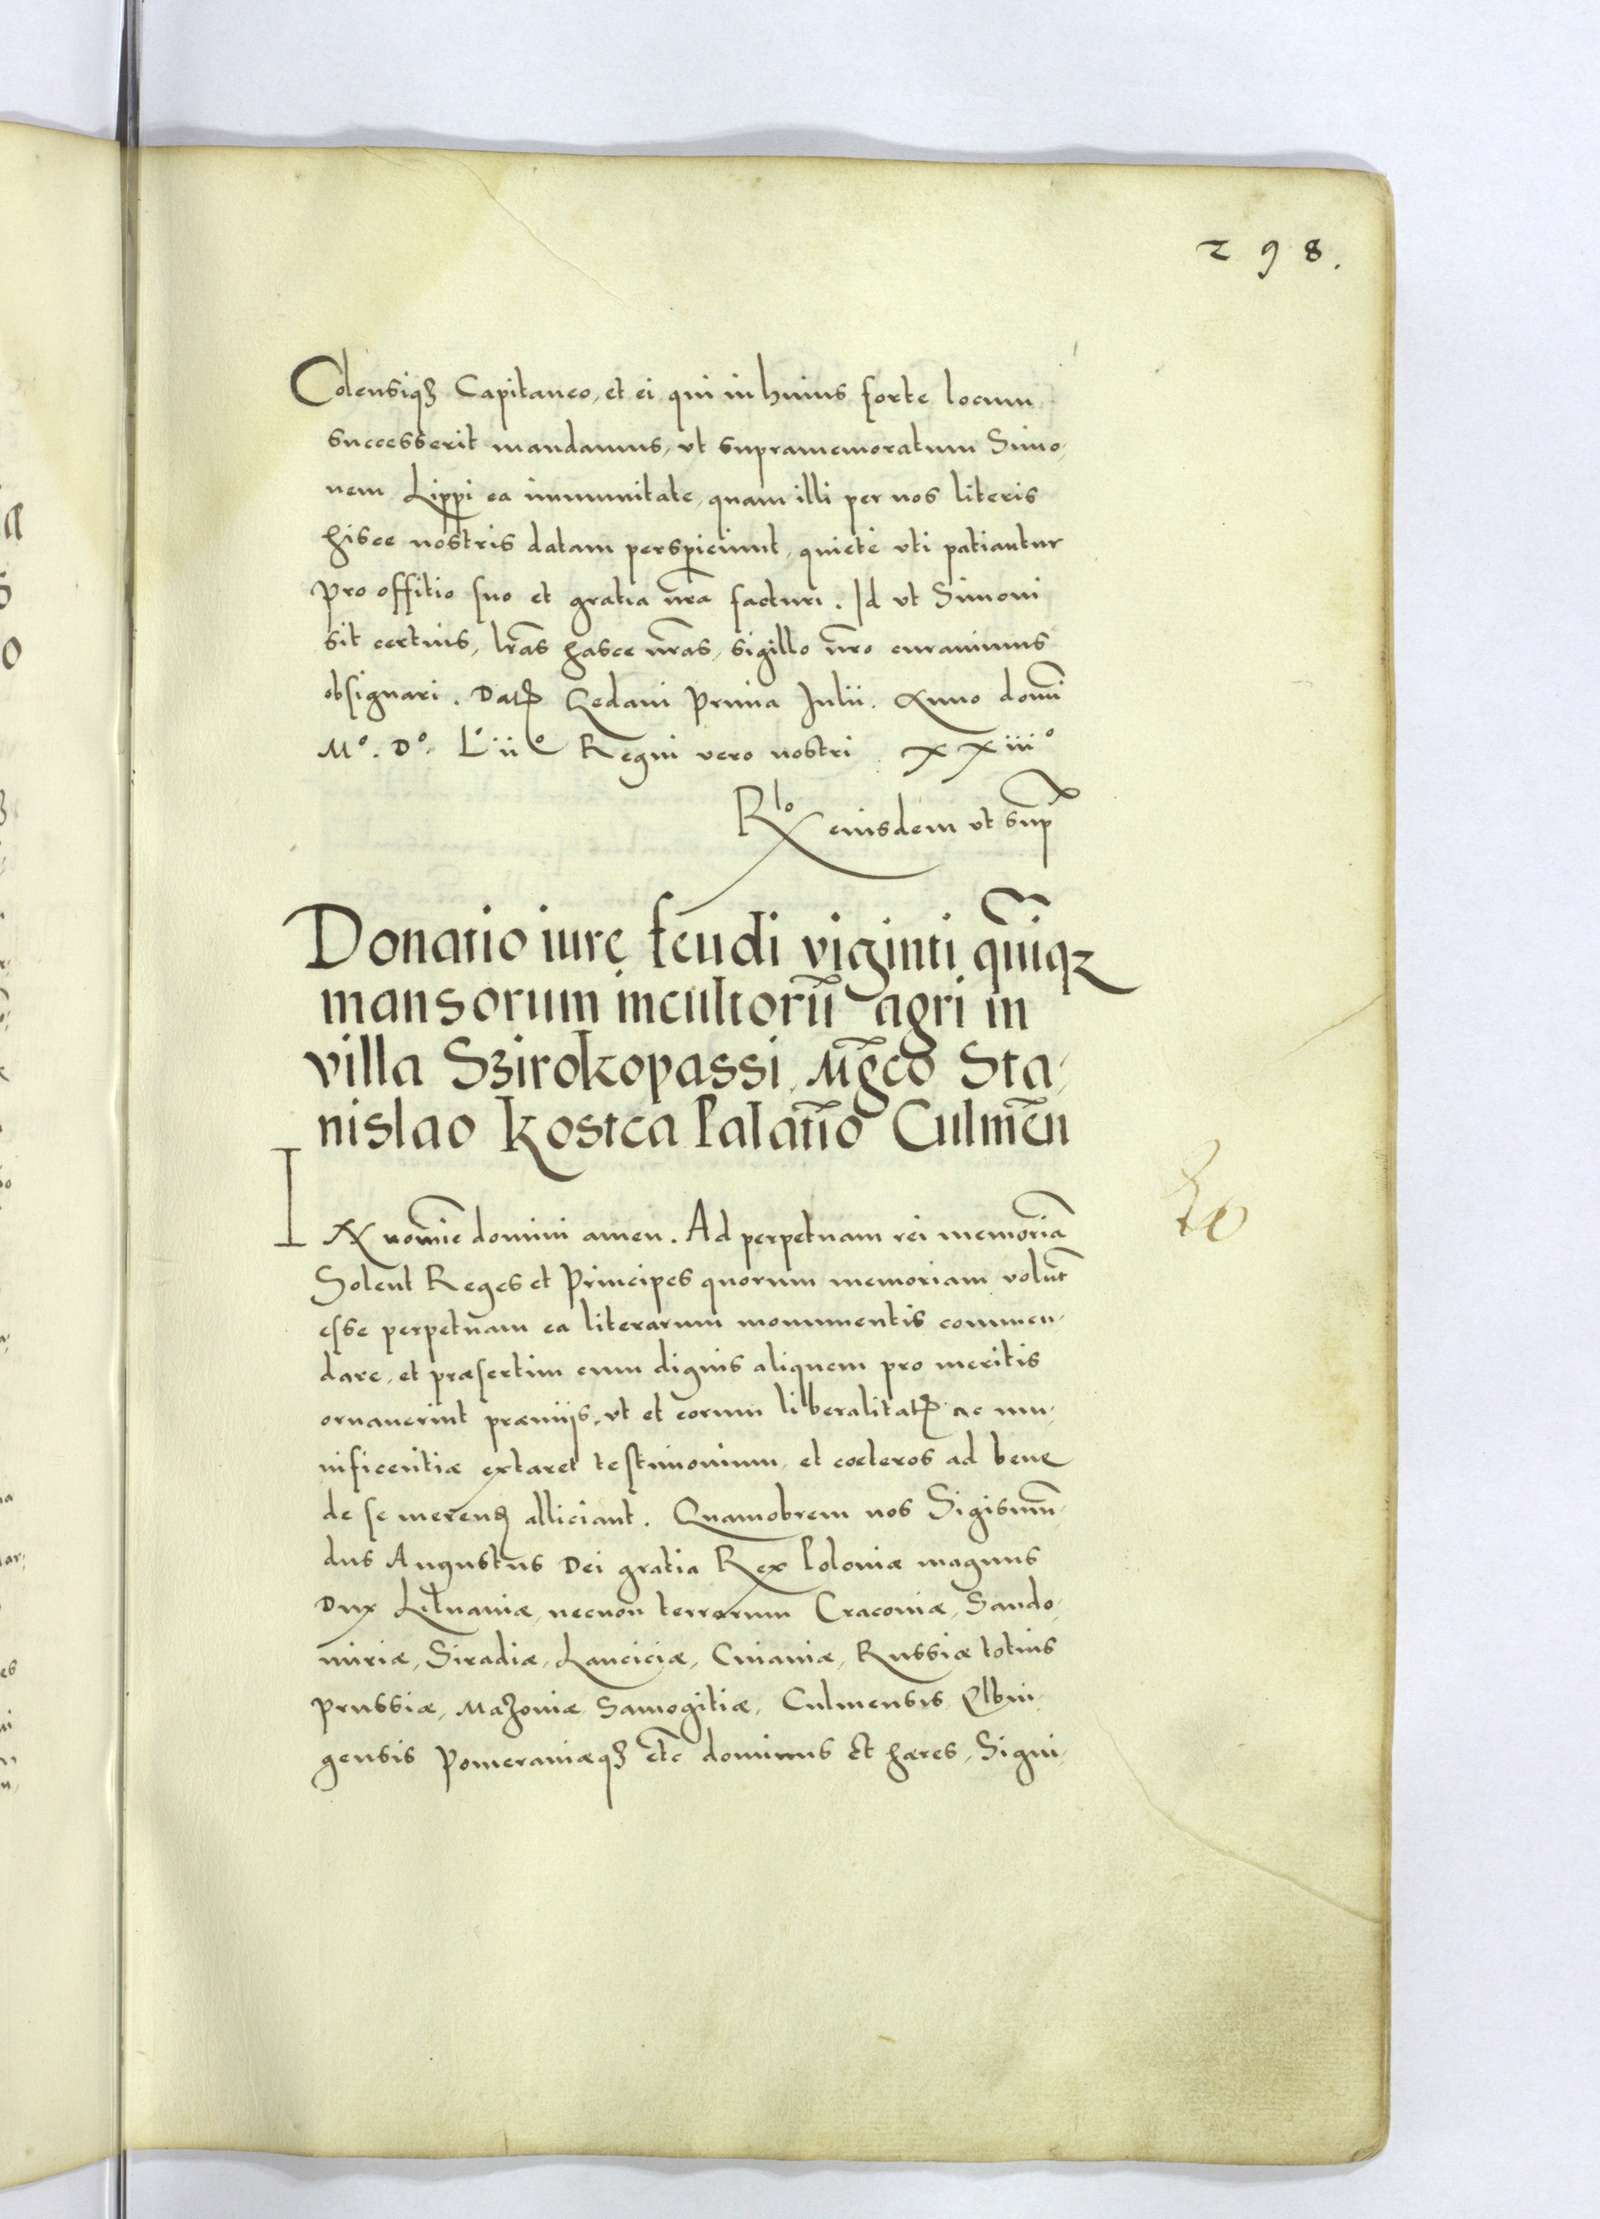 298.
Colensiqȝ Capitaneo, et ei qui in huius forte locum
successerit mandamus, vt supramemoratum Simo-
nem Lippi ea immunitate, quam illi per nos literis
hisce nostris datam perspiciunt, quiete vti patiantur
pro offitio suo et gratia nr̃a facturi. Id vt Simoni
sit certius, lr̃as hasce nr̃as, sigillo nr̃o curauimus
obsignari. Datꝝ Gedani Prima Julii. Anno domĩ
Mº. Dº. Lº iiº Regni vero nostri XXiiiº
Rlo eiusdem vt sup̃
Donatio iure feudi viginti quĩqȝ
mansorum incultorũ agri in
villa Szirokopassi, Mg̃co Sta-
nislao Kostca Palatĩo Culmeñ
IN nomĩe domini amen. Ad perpetuam rei memoriã
Solent Reges et Principes quorum memoriam volũt
esse perpetuam ea literarum monumentis commen-
dare, et præsertim cum dignis aliquem pro meritis
ornauerint præmijs, vt et eorum liberalitatꝝ ac mu-
nificentiæ extaret testimonium, et cœteros ad bene
de se merenꝝ alliciant. Quamobrem nos Sigismũ-
dus Augustus Dei gratia Rex Poloniæ magnus
Dux Lituaniæ, necnon terrarum Cracoviæ, Sando-
miriæ, Siradiæ, Lanciciæ, Cuiaviæ, Russiæ totius
Prussiæ, Mazoviæ Samogitiæ, Culmensis Elbin-
gensis Pomeraniæqȝ etc̃ dominus et hæres, Signi-